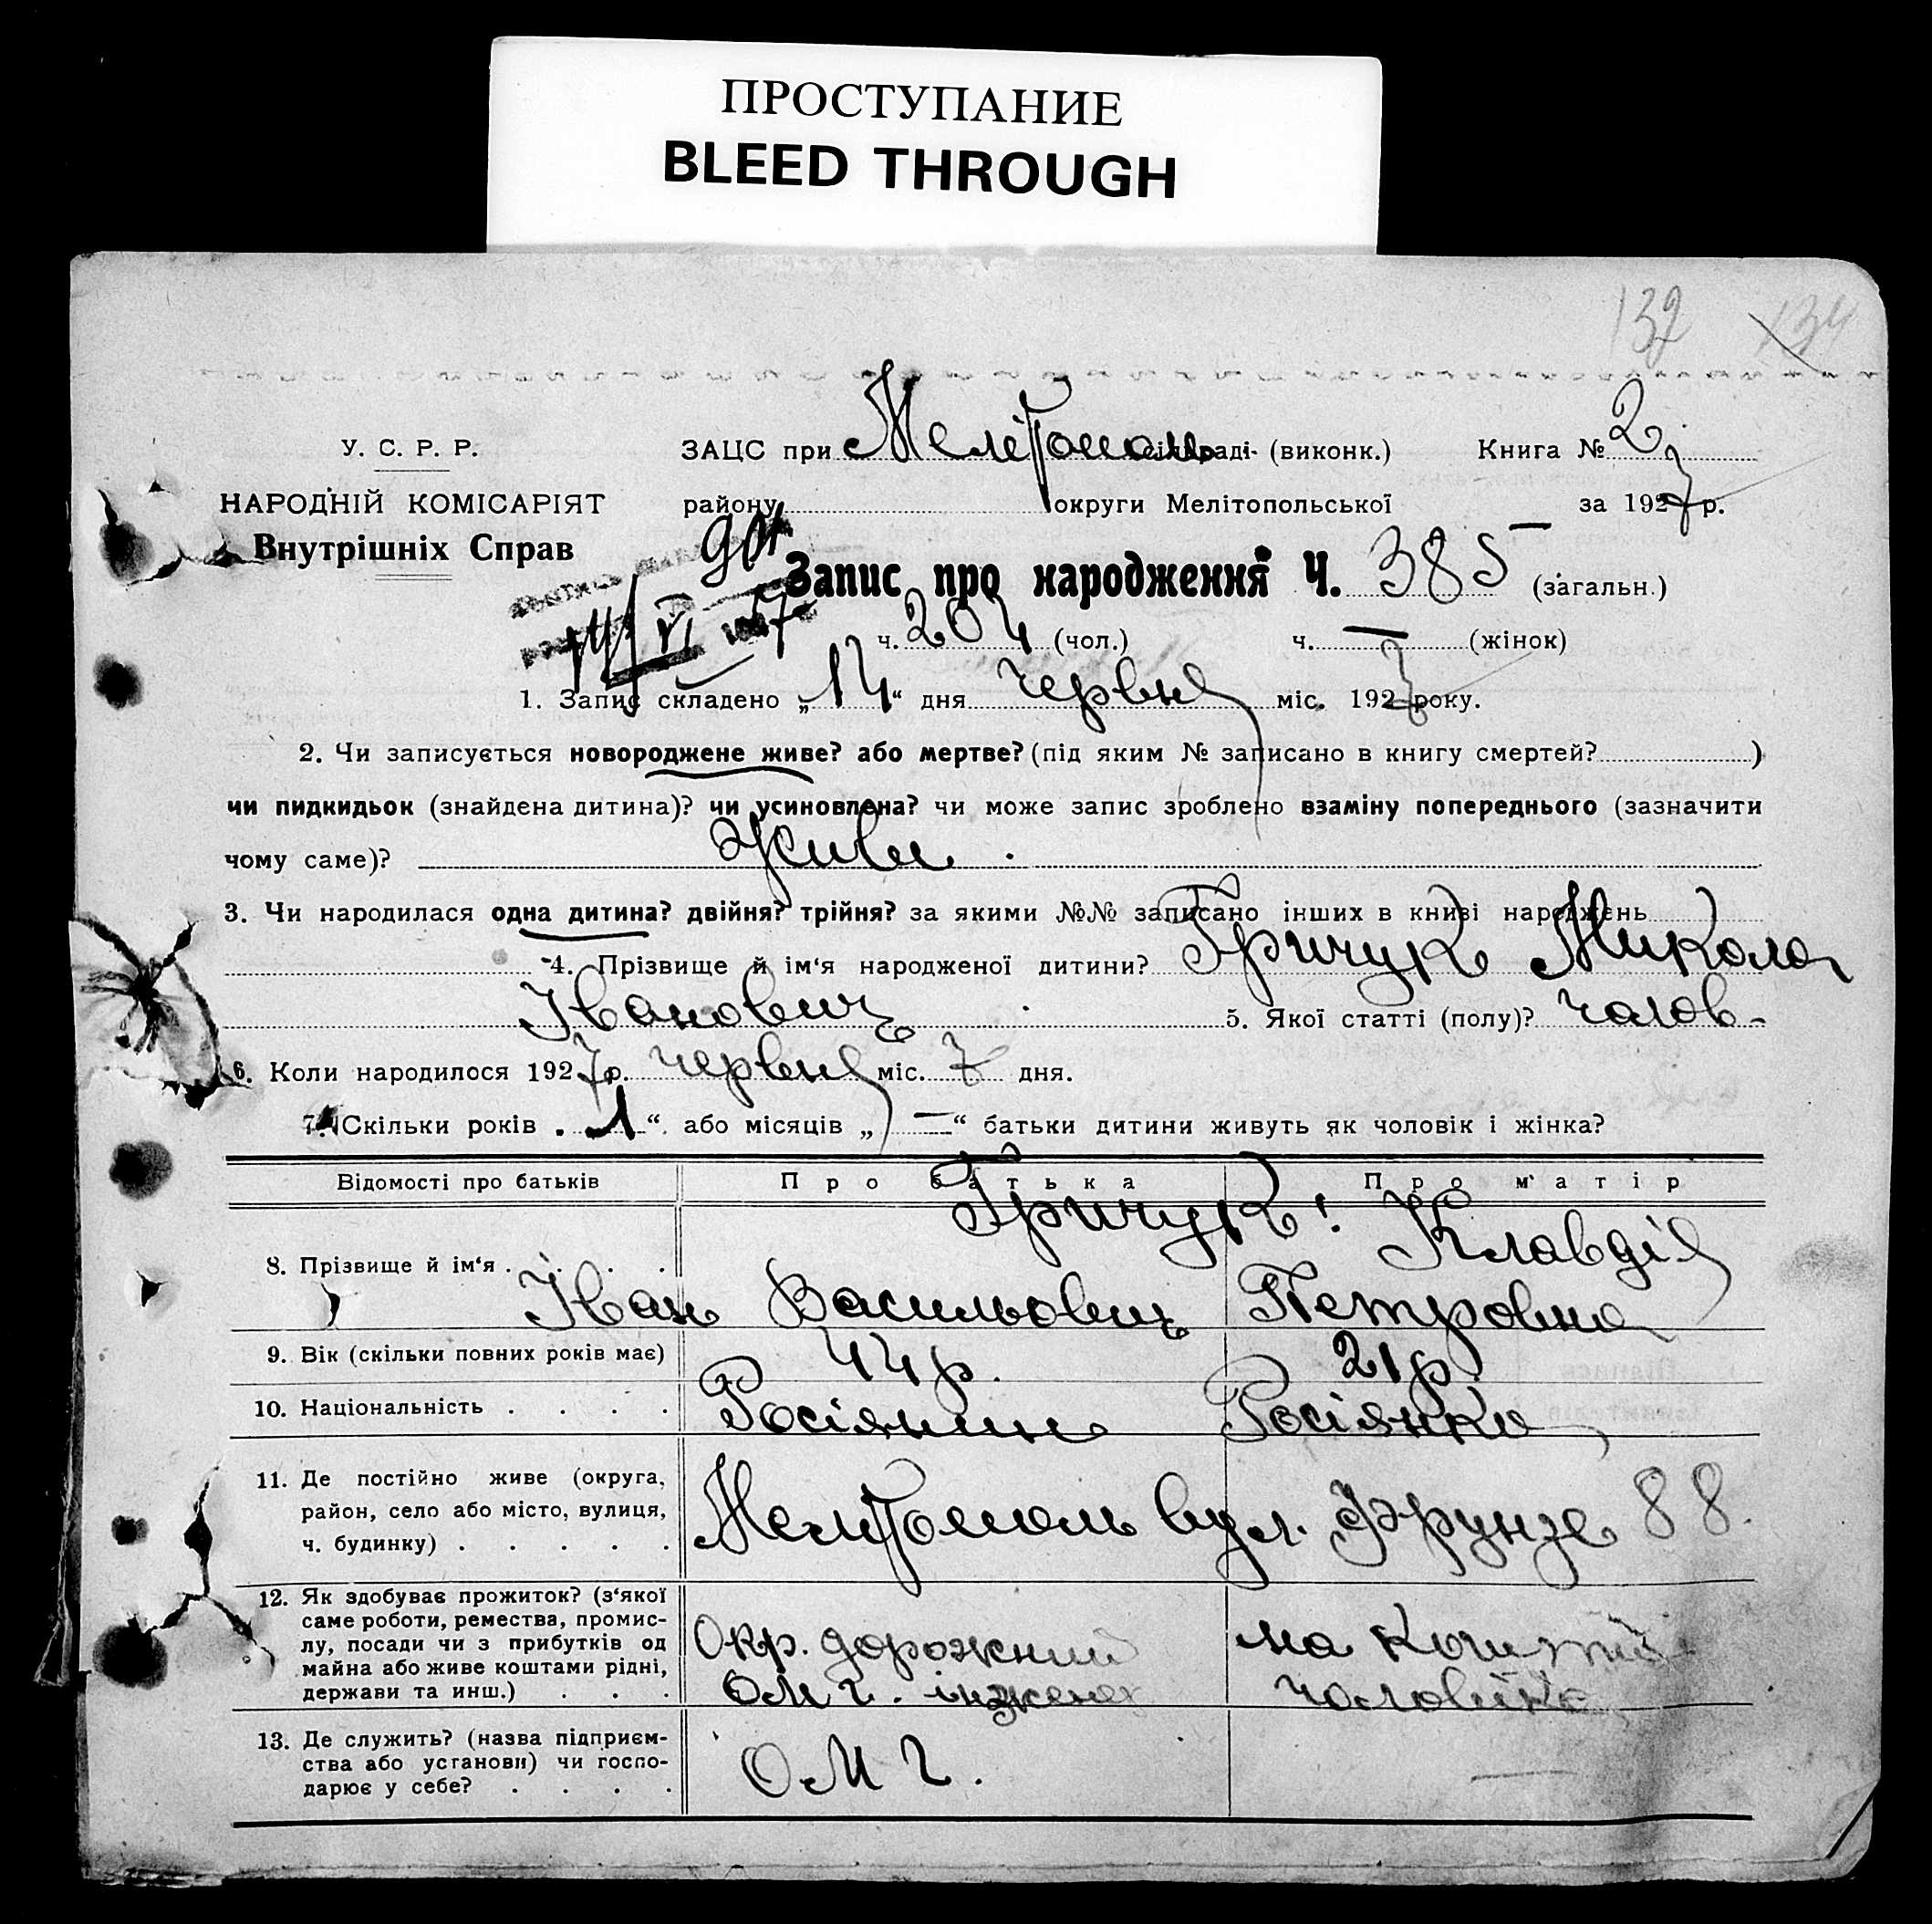 ПРОСТУПАНИЕ
BLEED THROUGH
132 134
У. С. Р. Р.
НАРОДНІЙ КОМІСАРІЯТ
Внутрішніх Справ
ЗАЦС при Мелітополь сільраді- (виконк.) Книга № 2
району округи Мелітопольської за 1927 р.
Запис про народження Ч. 385 (загальн.)
14/VI 1927
ч. 204 (чол.) ч. — (жінок)
1. Запис складено „14“ дня червня міс. 1927 року.
2. Чи записується новороджене живе? або мертве? (під яким № записано в книгу смертей? )
чи пидкидьок (знайдена дитина)? чи усиновлена? чи може запис зроблено взаміну попереднього (зазначити
чому саме)? живе
3. Чи народилася одна дитина? двійня? трійня? за якими №№ записано інших в книзі народжень
4. Прізвище й ім‘я народженої дитини? Гричук Микола
Іванович 5. Якої статті (полу)? чолов-
6. Коли народилося 1927 р. червня міс. 7 дня.
7. Скільки років „1“ або місяців „—“ батьки дитини живуть як чоловік і жінка?
Відомості про батьків Про батька Про матір
8. Прізвище й ім‘я . . . . Гричук: Клавдія
Іван Васильович Петровна
9. Вік (скільки повних років має) 44 р. 21 р.
10. Національність . . . . Росіянин Росіянка
11. Де постійно живе (округа,
район, село або місто, вулиця,
ч. будинку) . . . . . Мелітополь вул. Фрунзе 88.
12. Як здобуває прожиток? (з‘якої
саме роботи, ремества, промис-
лу, посади чи з прибутків од
майна або живе коштами рідні,
держави та инш.) . . .
Окр. дорожний на кошти
ОМГ. інженер чоловіка
13. Де служить? (назва підприєм-
ства або установи) чи госпо-
дарює у себе? . . . .
ОМГ. —